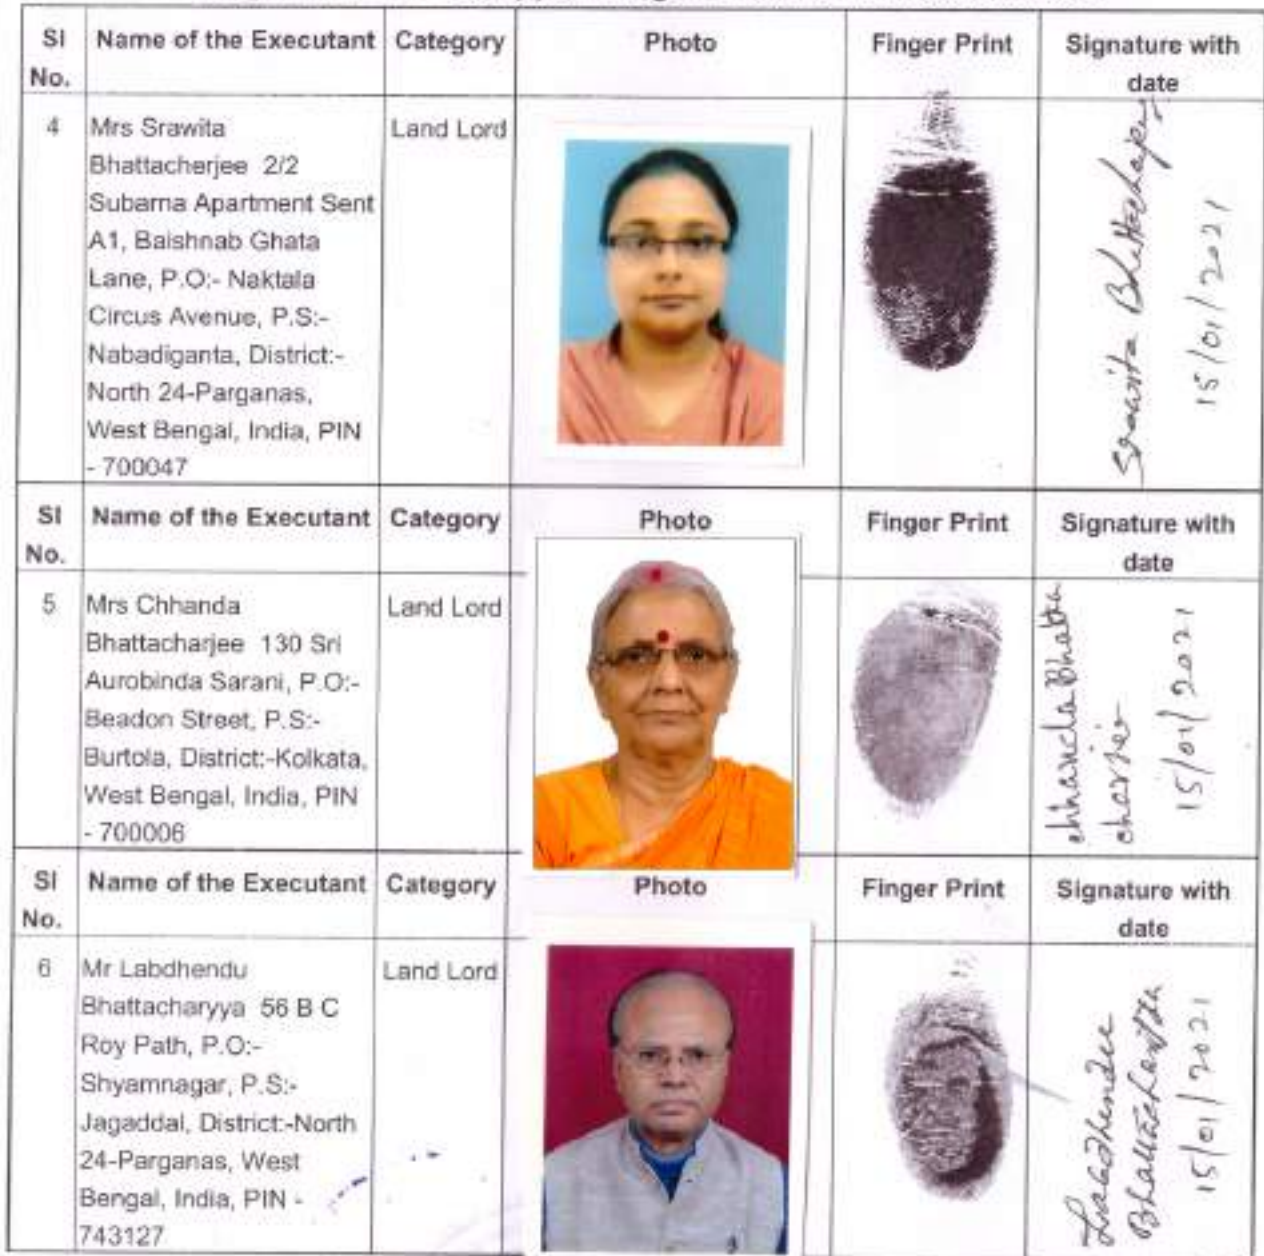 SI No. Name of the Executant Category Photo Finger Print Signature with date
4 Mrs Srawita Land Lord
Bhattacherjee 2/2
Subarna Apartment Sent
A1, Baishnab Ghata
Lane, P.O:- Naktala
Circus Avenue, P.S:-
Nabadiganta, District:-
North 24-Parganas,
West Bengal, India, PIN
- 700047
Srawita Bhattacherjee
15/01/2021
SI No. Name of the Executant Category Photo Finger Print Signature with date
5 Mrs Chhanda Land Lord
Bhattacharjee 130 Sri
Aurobinda Sarani, P.O:-
Beadon Street, P.S:-
Burtola, District:-Kolkata,
West Bengal, India, PIN
- 700006
chhanda Bhatta
charjee
15/01/2021
SI No. Name of the Executant Category Photo Finger Print Signature with date
6 Mr Labdhendu Land Lord
Bhattacharyya 56 B C
Roy Path, P.O:-
Shyamnagar, P.S:-
Jagaddal, District:-North
24-Parganas, West
Bengal, India, PIN -
743127
Labdhendu
Bhattacharyya
15/01/2021